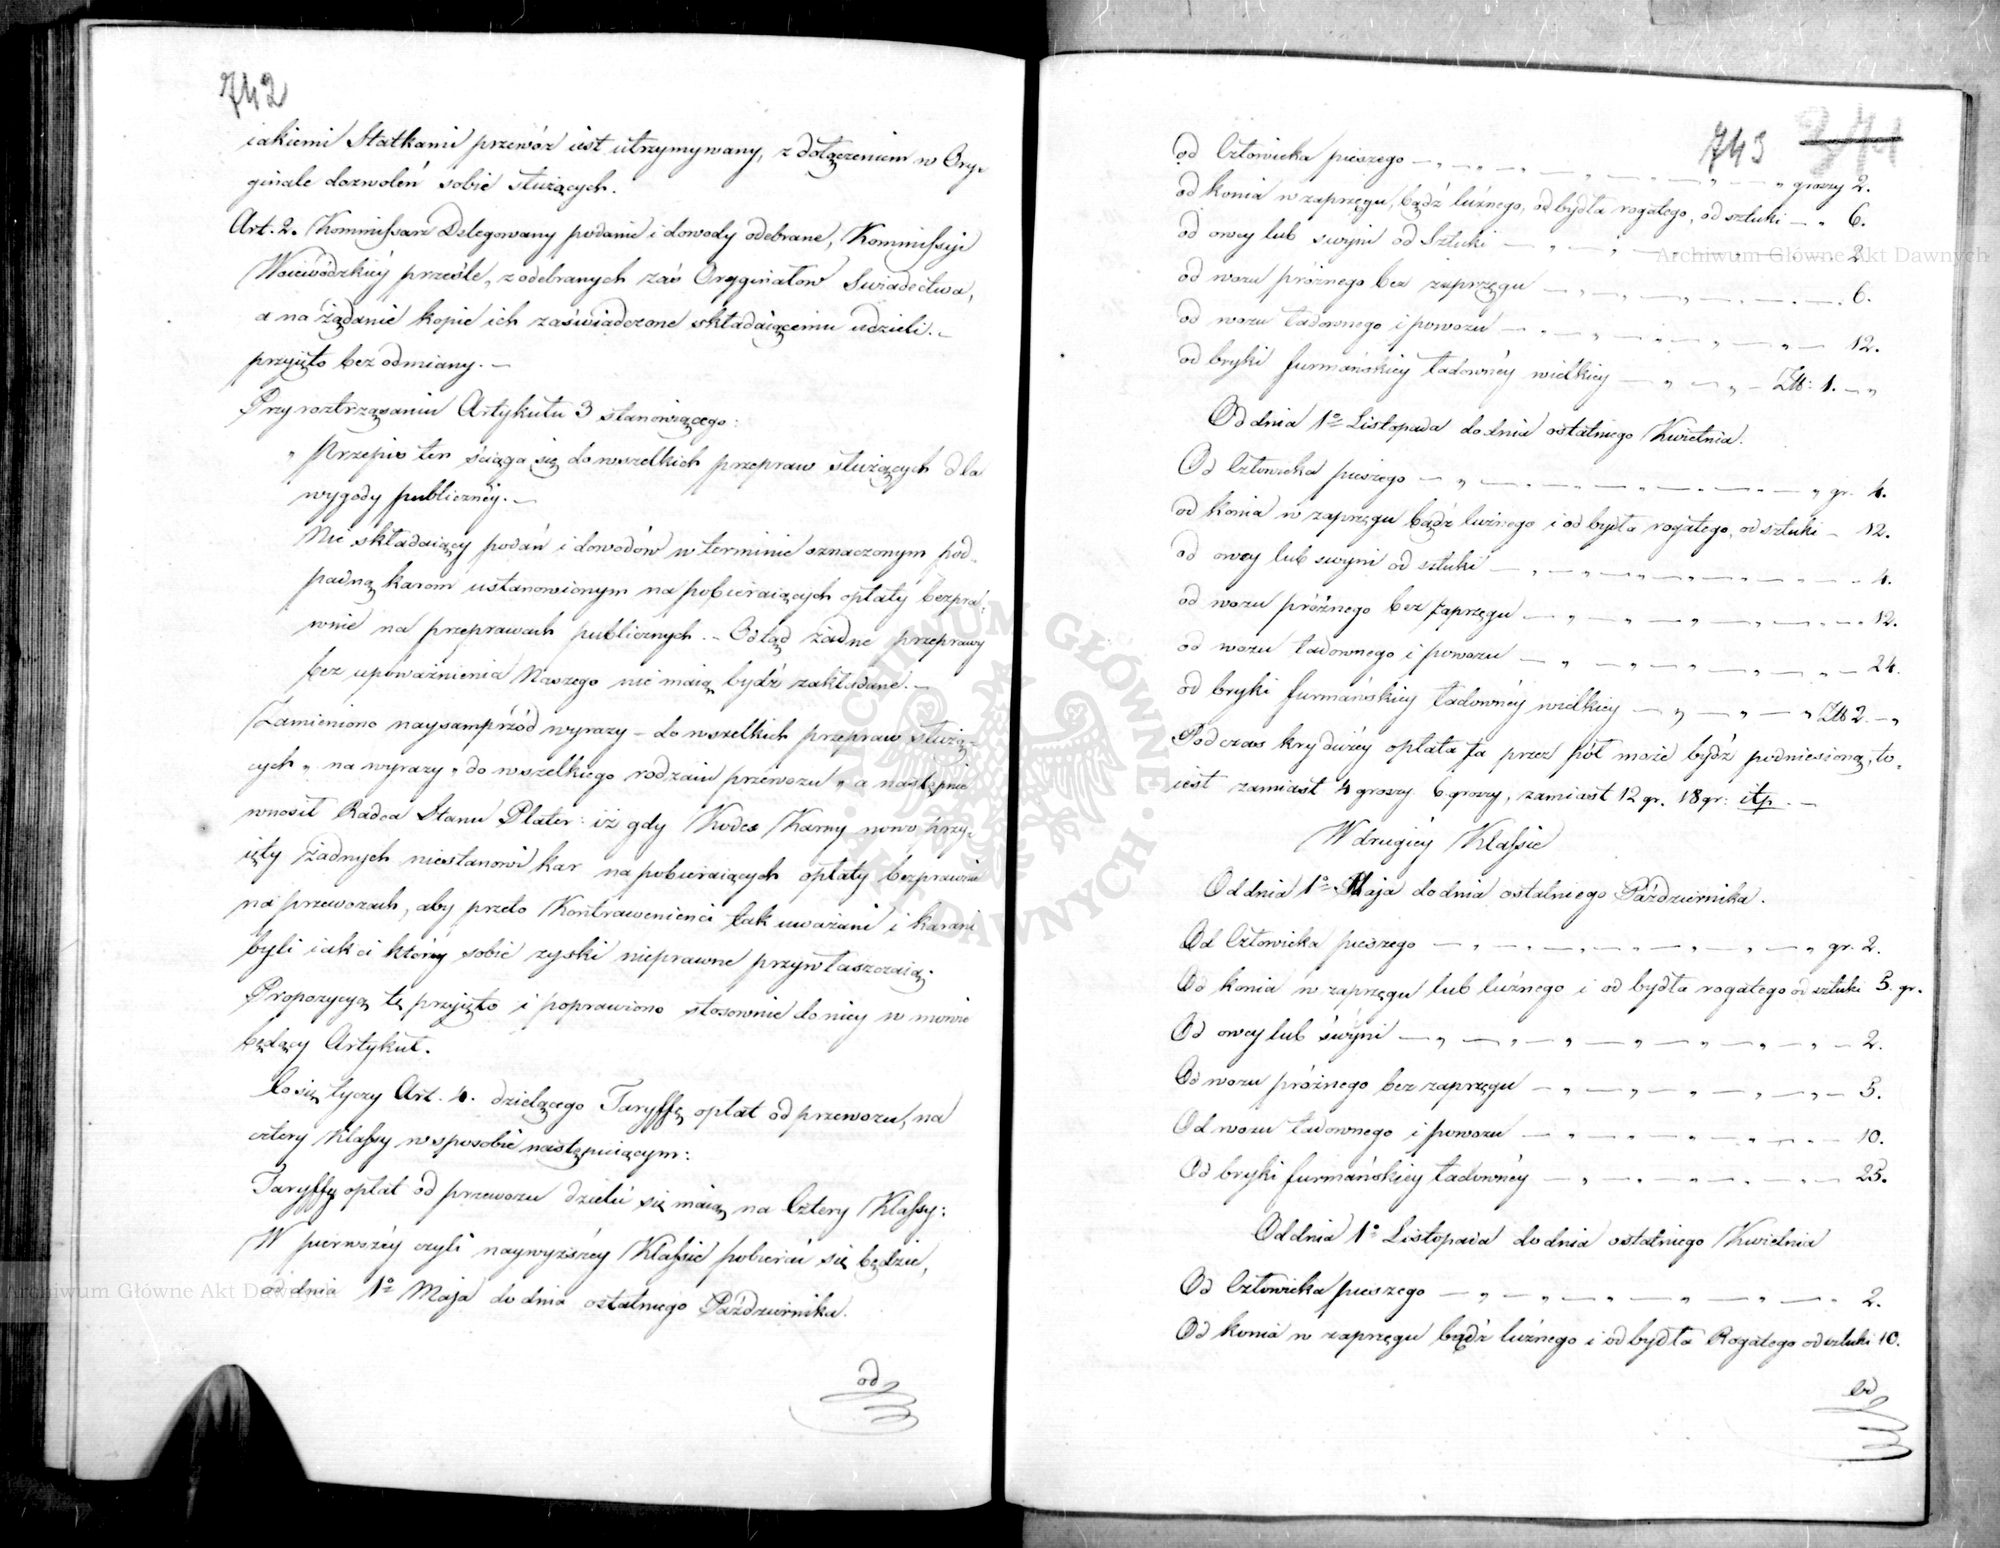 742
iakiemi Statkami przewóz iest utrzymywany, z dołączeniem w Ory-
ginale dozwoleń sobie służących.
Art. 2. Kommissarz Delegowany podanie i dowody odebrane, Kommissyi
Woiewódzkiéy prześle, z odebranych zaś Oryginałow Swiadectwa,
a na żądanie kopie ich zaświadczone składaiącemu udzieli. –
przyięto bez odmiany. –
Przy roztrząsaniu Artykułu 3 stanowiącego:
„Przepis ten ściąga się do wszelkich przepraw służących dla
wygody publicznéy. –
Nie składaiący podań i dowodów w terminie oznaczonym pod-
padną karom ustanowionym na pobieraiących opłaty bezpra-
wnie na przeprawach publicznych. – Odtąd żadne przeprawy
bez upoważnienia Naszego nie maią bydź zakładane. –
Zamieniono naysamprzód wyrazy – do wszelkich przepraw służą-
cych „ na wyrazy „ do wszelkiego rodzaiu przewozu „ a następnie
wnosił Radca Stanu Plater: iż gdy Kodex Karny nowo przy-
ięty żadnych niestanowi kar na pobieraiących opłaty bezprawnie
na przewozach, aby przeto Kontrawenienci tak uważani i karani
byli iak ci którzy sobie zyski nieprawne przywłaszczaią.
Propozycyą tę przyięto i poprawiono stosownie do niey w mowie
będący Artykuł.
Co się tyczy Art. 4. dzielącego Taryffę opłat od przewozu, na
cztery Klassy w sposobie następuiącym:
Taryffy opłat od przewozu dzielić się maią na Cztery Klassy:
W pierwszéy czyli naywyższéy Klassie pobierać się będzie,
od dnia 1º Maja do dnia ostatniego Października.
od
743 371
od Człowieka pieszego – „ – „ – „ – „ – „ groszy 2.
od konia w zaprzęgu, bądź luźnego, od bydła rogatego, od sztuki – „ 6.
od owcy lub swyni od Sztuki – „ – „ – „ – 2.
od wozu próżnego bez zaprzęgu – „ – „ – „ – 6.
od wozu ładownego i powozu – „ – „ – „ – 12.
od bryki furmańskiey ładownéy wielkiey – „ – „ – Złł: 1. – „
Od dnia 1º Listopada do dnia ostatniego Kwietnia.
Od Człowieka pieszego – „ – „ – „ – „ gr. 4.
od konia w zaprzęgu bądź luźnego i od bydła rogatego, od sztuki – 12.
od owcy lub swyni od sztuki – „ – „ – „ – 4.
od wozu próżnego bez zaprzęgu – „ – „ – „ – 12.
od wozu ładownego i powozu – „ – „ – „ – 24.
od bryki furmańskiey ładownéy wielkiey – „ – „ – „ Złł 2. – „
Podczas kry dużéy opłata ta przez pół może bydź podniesioną, to-
iest zamiast 4 groszy 6 groszy, zamiast 12 gr. 18 gr: itp. –
W drugiéy Klassie
Od dnia 1º Maja do dnia ostatniego Października.
Od Człowieka pieszego – „ – „ – „ – „ gr. 2.
Od konia w zaprzęgu lub luźnego i od bydła rogatego od sztuki 5. gr.
Od owcy lub świyni – „ – „ – „ – „ – 2.
Od wozu próżnego bez zaprzęgu – „ – „ – „ – 5.
Od wozu ładownego i powozu – „ – „ – „ – 10.
Od bryki furmańskiey ładownéy – „ – „ – „ – 25.
Od dnia 1º Listopada do dnia ostatniego Kwietnia
Od Człowieka pieszego – „ – „ – „ – „ 2.
Od konia w zaprzęgu bądź luźnego i od bydła Rogatego od sztuki 10.
od
Archiwum Główne Akt Dawnych
Archiwum Główne Akt Dawnych
ARCHIWUM GŁÓWNE AKT DAWNYCH